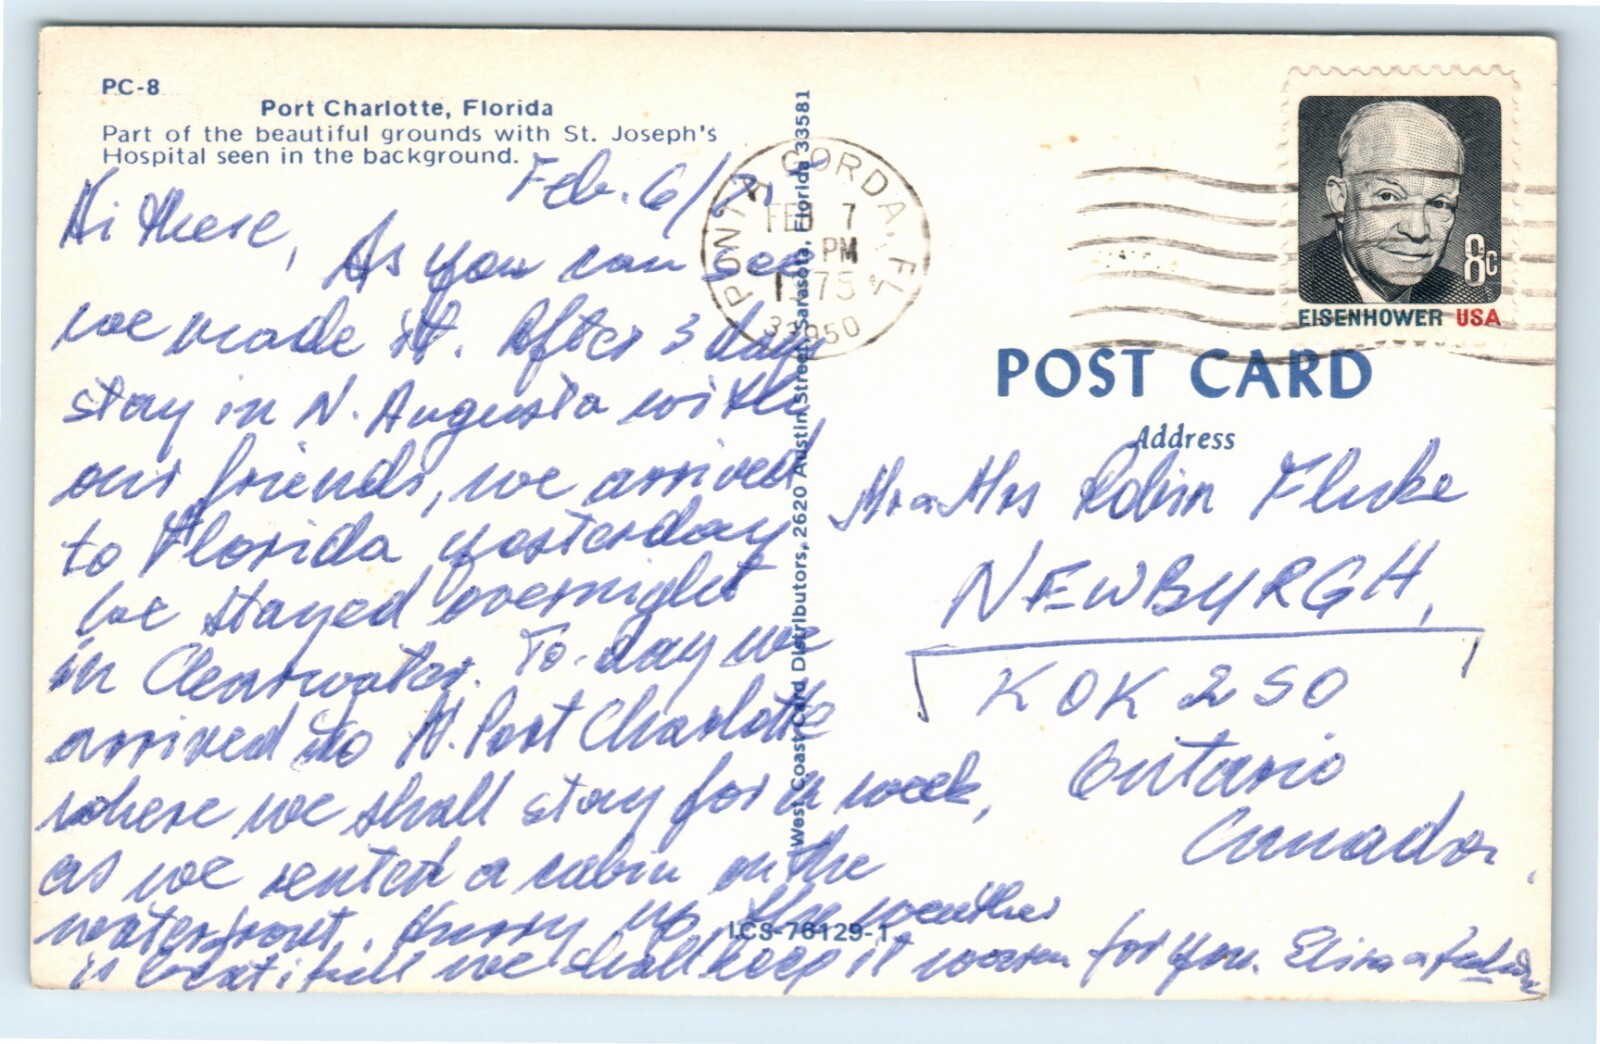 PC-8
Port Charlotte, Florida
Part of the beautiful grounds with St. Joseph's
Hospital seen in the background.
Feb. 6/
Hi there,
As you can see
we made it. After 3 day
stay in N. Augusta with
our friends, we arrived
to Florida yesterday
we stayed overnight
in Clearwater. To-day we
arrived to N. Port Charlotte
where we shall stay for a week,
as we rented a cabin on the
waterfront. Hurry up the weather
is beatifull we shall keep it warm for you.
West Coast Card Distributors, 2620 Austin Street, Sarasota, Florida 33581
LCS-76129-1
PUNTA GORDA, FL
FEB 7
PM
1975
33950
8c
EISENHOWER USA
POST CARD
Address
Mr a Mrs Robin Fluke
NEWBURGH,
KOK 2S0
Ontario
Canada.